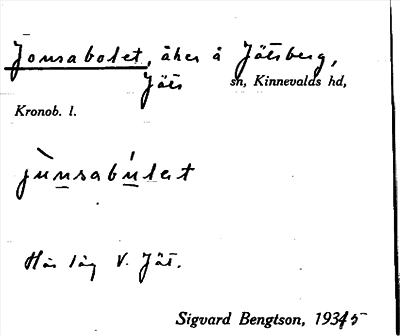 Jonsabolet, åker å Jätsberg,
Jäts sn, Kinnevalds hd,
Kronob. l.
jùnsabúlet
Här låg V. Jät.
Sigvard Bengtson, 1935